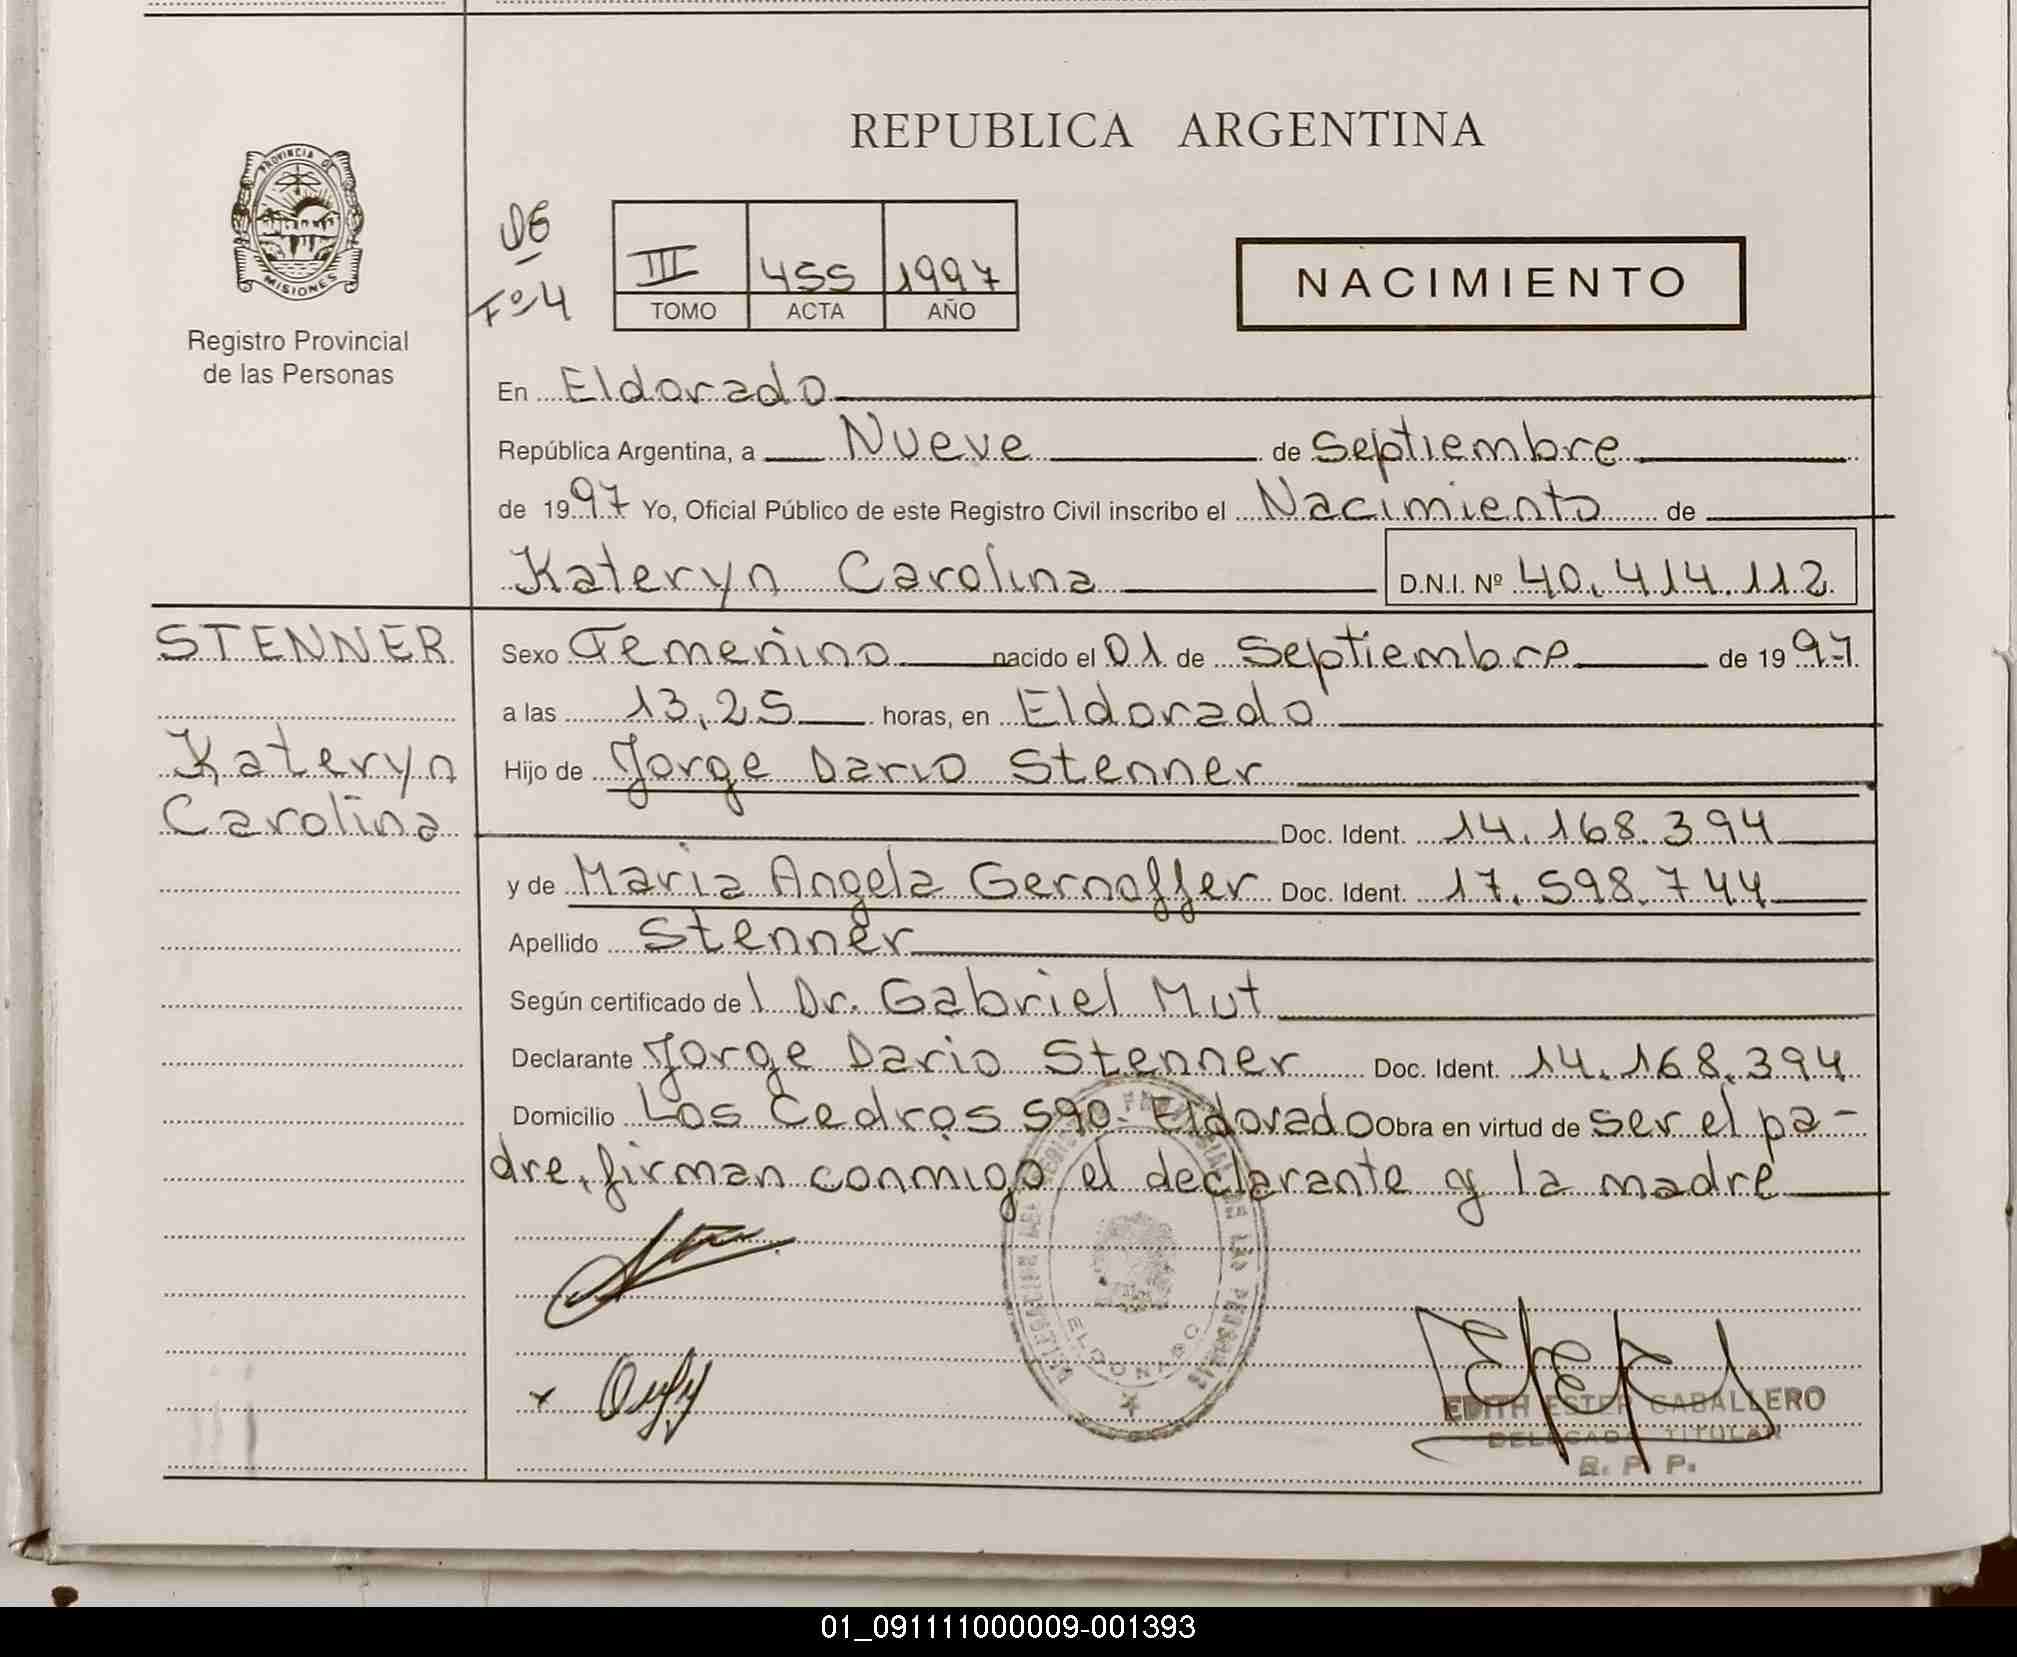 REPUBLICA ARGENTINA
PROVINCIA DE
MISIONES
Registro Provincial
de las Personas
Fº 4
III 455 1997
TOMO ACTA AÑO
NACIMIENTO
En Eldorado
República Argentina, a Nueve de Septiembre
de 1997 Yo, Oficial Público de este Registro Civil inscribo el Nacimiento de
Kateryn Carolina D.N.I. Nº 40.414.112
STENNER
Kateryn
Carolina
Sexo Femenino nacido el 01 de Septiembre de 1997
a las 13,25 horas, en Eldorado
Hijo de Jorge Dario Stenner
Doc. Ident. 14.168.394
y de Maria Angela Gernoffer Doc. Ident. 17.598.744
Apellido Stenner
Según certificado del Dr. Gabriel Mut
Declarante Jorge Dario Stenner Doc. Ident. 14.168.394
Domicilio Los Cedros 590- Eldorado Obra en virtud de ser el pa-
dre, firman conmigo el declarante y la madre
ELDORADO
EDITH ESTER CABALLERO
DELEGADA TITULAR
R. P. P.
01_091111000009-001393